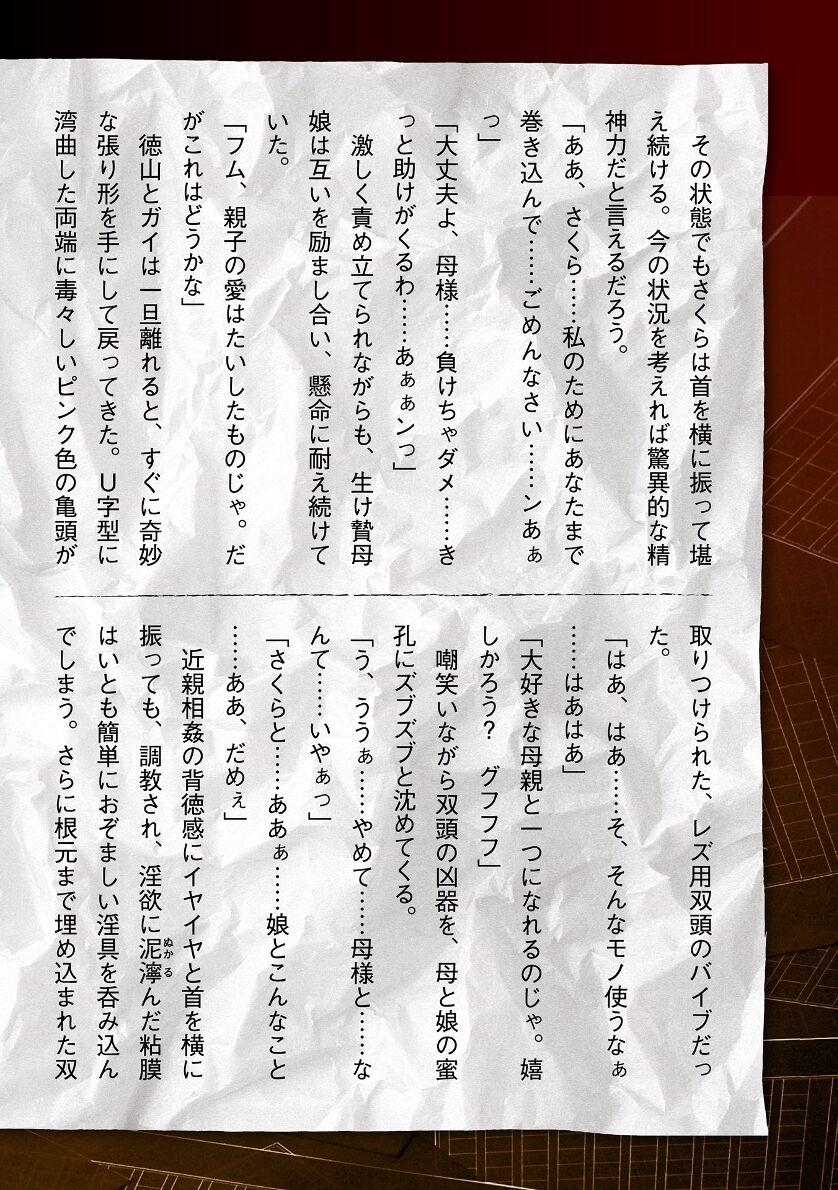 その状態でもさくらは首を横に振って堪
え続ける。今の状況を考えれば驚異的な精
神力だと言えるだろう。
「ああ、さくら……私のためにあなたまで
巻き込んで……ごめんなさい……ンあぁ
っ」
「大丈夫よ、母様……負けちゃダメ……き
っと助けがくるわ……あぁぁンっ」
激しく責め立てられながらも、生け贄母
娘は互いを励まし合い、懸命に耐え続けて
いた。
「フム、親子の愛はたいしたものじゃ。だ
がこれはどうかな」
徳山とガイは一旦離れると、すぐに奇妙
な張り形を手にして戻ってきた。U字型に
湾曲した両端に毒々しいピンク色の亀頭が
取りつけられた、レズ用双頭のバイブだっ
た。
「はあ、はあ……そ、そんなモノ使うなぁ
……はあはあ」
「大好きな母親と一つになれるのじゃ。嬉
しかろう?　グフフフ」
嘲笑いながら双頭の凶器を、母と娘の蜜
孔にズブズブと沈めてくる。
「う、ううぁ……やめて……母様と……な
んて……いやぁっ」
「さくらと……ああぁ……娘とこんなこと
……ああ、だめぇ」
近親相姦の背徳感にイヤイヤと首を横に
振っても、調教され、淫欲に泥濘んだ粘膜
ぬかる
はいとも簡単におぞましい淫具を呑み込ん
でしまう。さらに根元まで埋め込まれた双